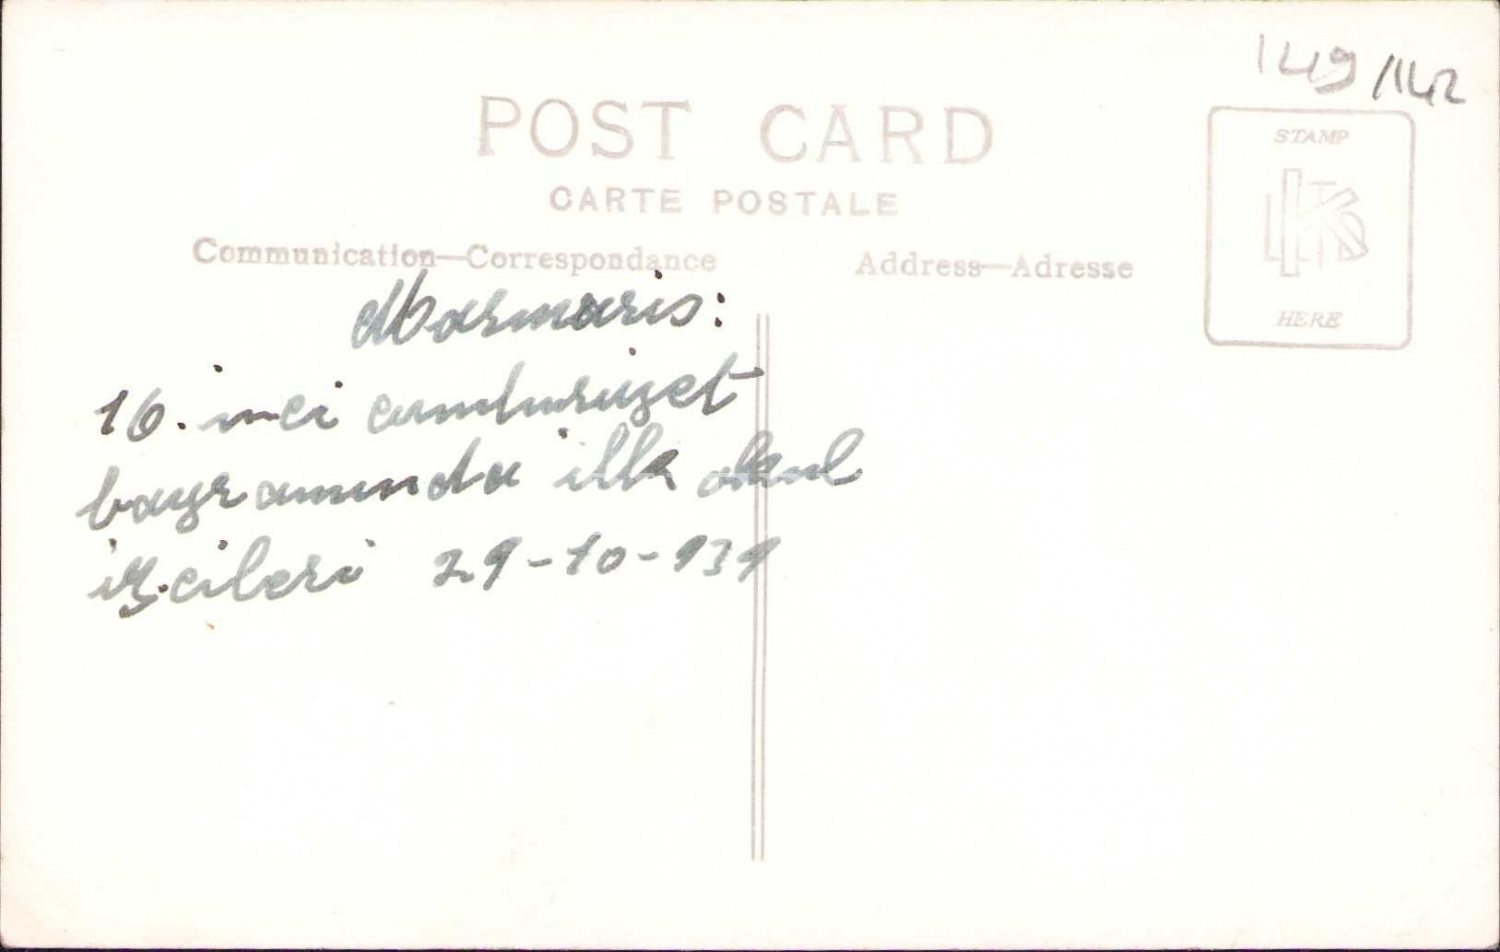 149/142
POST CARD
CARTE POSTALE
Communication—Correspondance
Address—Adresse
STAMP
HERE
Marmaris:
16. inci cumhuriyet
bayramında ilk okul
izcileri 29-10-939